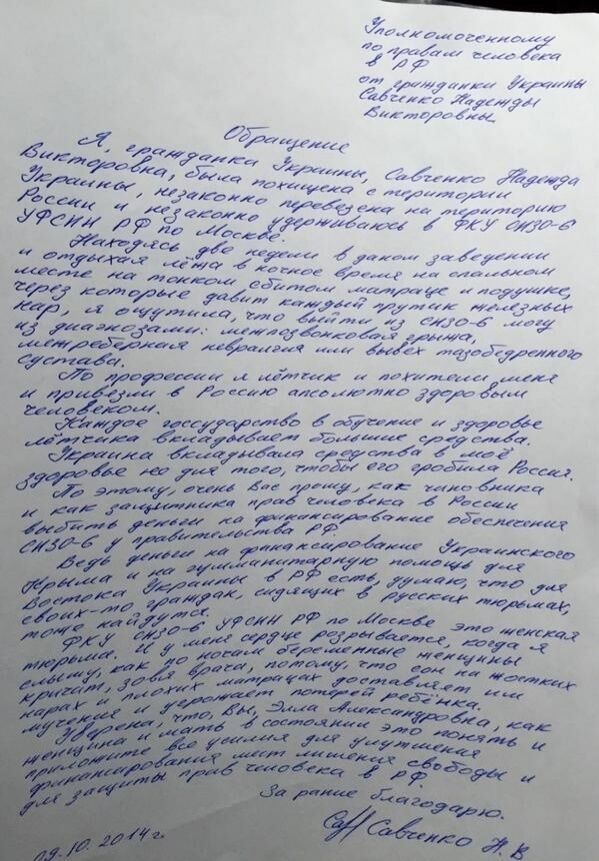 Уполномоченному
по правам человека
в РФ
от гражданки Украины
Савченко Надежды
Викторовны
Обращение
Я, гражданка Украины, Савченко Надежда
Викторовна, была похищена с територии
Украины, незаконно перевезена на територию
России и незаконно удерживаюсь в ФКУ СИЗО-6
УФСИН РФ по Москве.
Находясь две недели в даном заведении
и отдыхая лёжа в ночное время на спальном
месте на тонком сбитом матраце и подушке,
через которые давит каждый прутик железных
нар, я ощутила, что выйти из СИЗО-6 могу
из диагнозами: межпозвонковая грыжа,
межреберная невралгия или вывех тазобедренного
сустава.
По профессии я лётчик и похители меня
и привезли в Россию апсолютно здоровым
человеком.
Каждое госсударство в обучение и здоровье
лётчика вкладывает большие средства.
Украина вкладывала средства в моё
здоровье не для того, чтобы его гробила Россия.
По этому, очень Вас прошу, как чиновника
и как защитника прав человека в России
выбить деньги на финансирование обеспечения
СИЗО-6 у правительства РФ.
Ведь деньги на финансирование Украинского
Крыма и на гуммунитарную помощь для
Востока Украины в РФ есть, думаю, что для
своих-то граждан, сидящих в русских тюрьмах,
тоже найдутся.
ФКУ СИЗО-6 УФСИН РФ по Москве это женская
тюрьма. И у меня сердце розрывается, когда я
слышу, как по ночам беременные женщины
кричат, зовя врача, потому, что сон на жостких
нарах и плохих матрацах доставляет им
мучение и угрожает потерей ребёнка.
Уверена, что, Вы, Элла Александровна, как
женщина и мать в состоянии это понять и
приложите все усилия для улутшения
финансирования мест лишения свободы и
для защиты прав человека в РФ.
За рание благодарю.
Савченко Н. В
09.10.2014г.